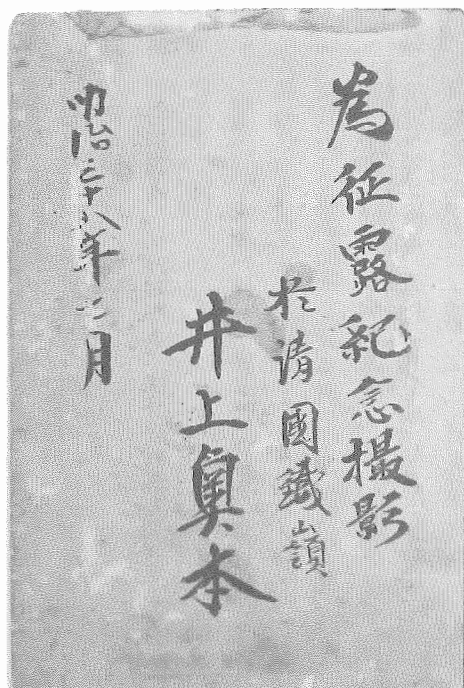 為征露紀念撮影
於清國鐵嶺
井上奥本
明治三十八年二月